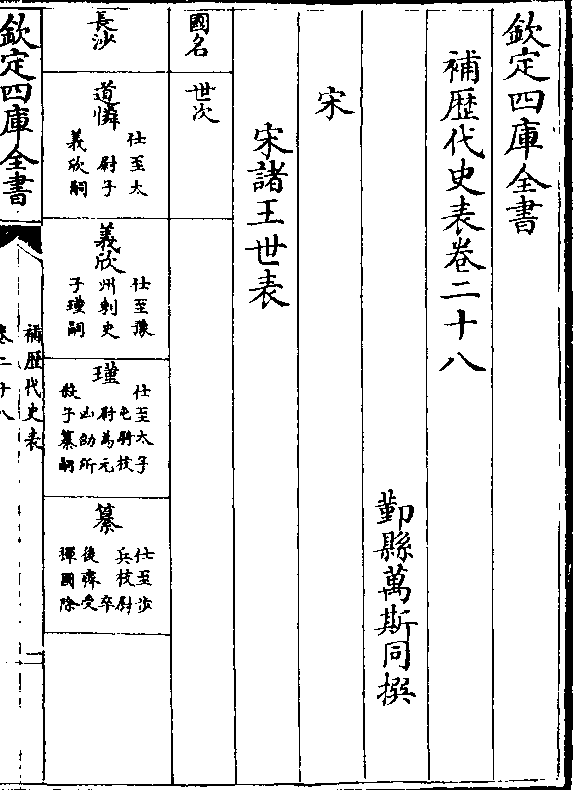 欽定四庫全書
補歴代史表卷二十八
鄞縣萬斯同撰
宋
宋諸王世表
國名
世次
長沙
道憐
仕至太
尉子
義欣嗣
義欣
仕至豫
州刺史
子瑾嗣
瑾
仕至太子
屯騎校
尉為元
凶劭所
殺子纂嗣
纂
仕至步
兵校尉
卒
後齊受
禪國除
欽定四庫全書
補歴代史表
卷二十八